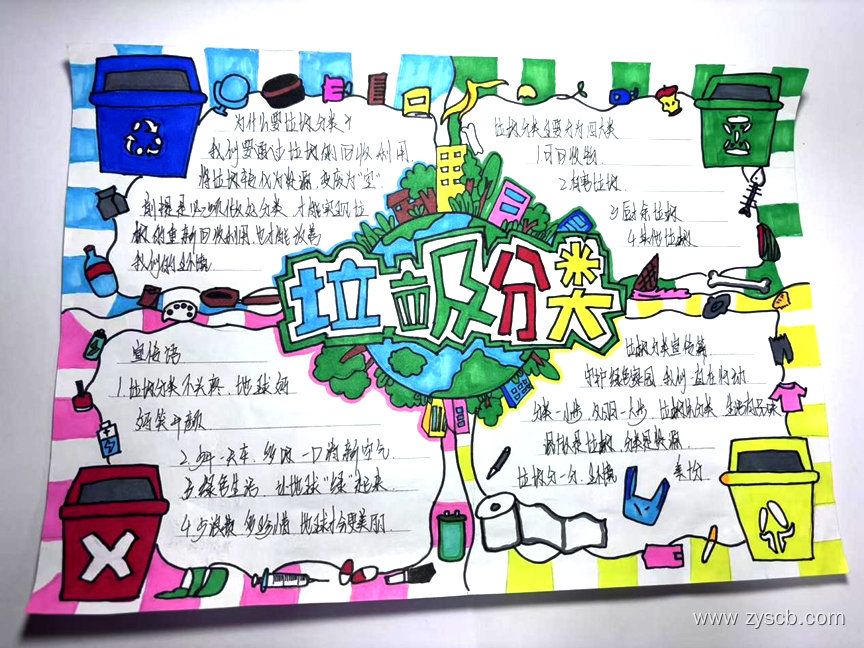 垃圾分类
为什么要垃圾分类？
我们要 垃圾的回收利用
将垃圾 为资源，变废为"宝"
前提是 垃圾分类 才能实现垃
圾的重新回收利用 也才能改善
我们的环境
垃圾分类主要分为四大类
1.可回收物
2.有害垃圾
3.厨余垃圾
4.其他垃圾
宣传语
1.垃圾分类 不 地球妈
妈笑开颜
2.少开一天车，多 一口清新空气
3.绿色生活，让地球"绿"起来
4.少浪费，多珍惜，地球才会更美丽
垃圾分类宣传篇
守护绿色家园，我们 在行动
分类一小步，文明一大步，垃圾分分类，生活有品味
混放是垃圾，分类是资源
垃圾分一分，环境
美十分
www.zyscb.com